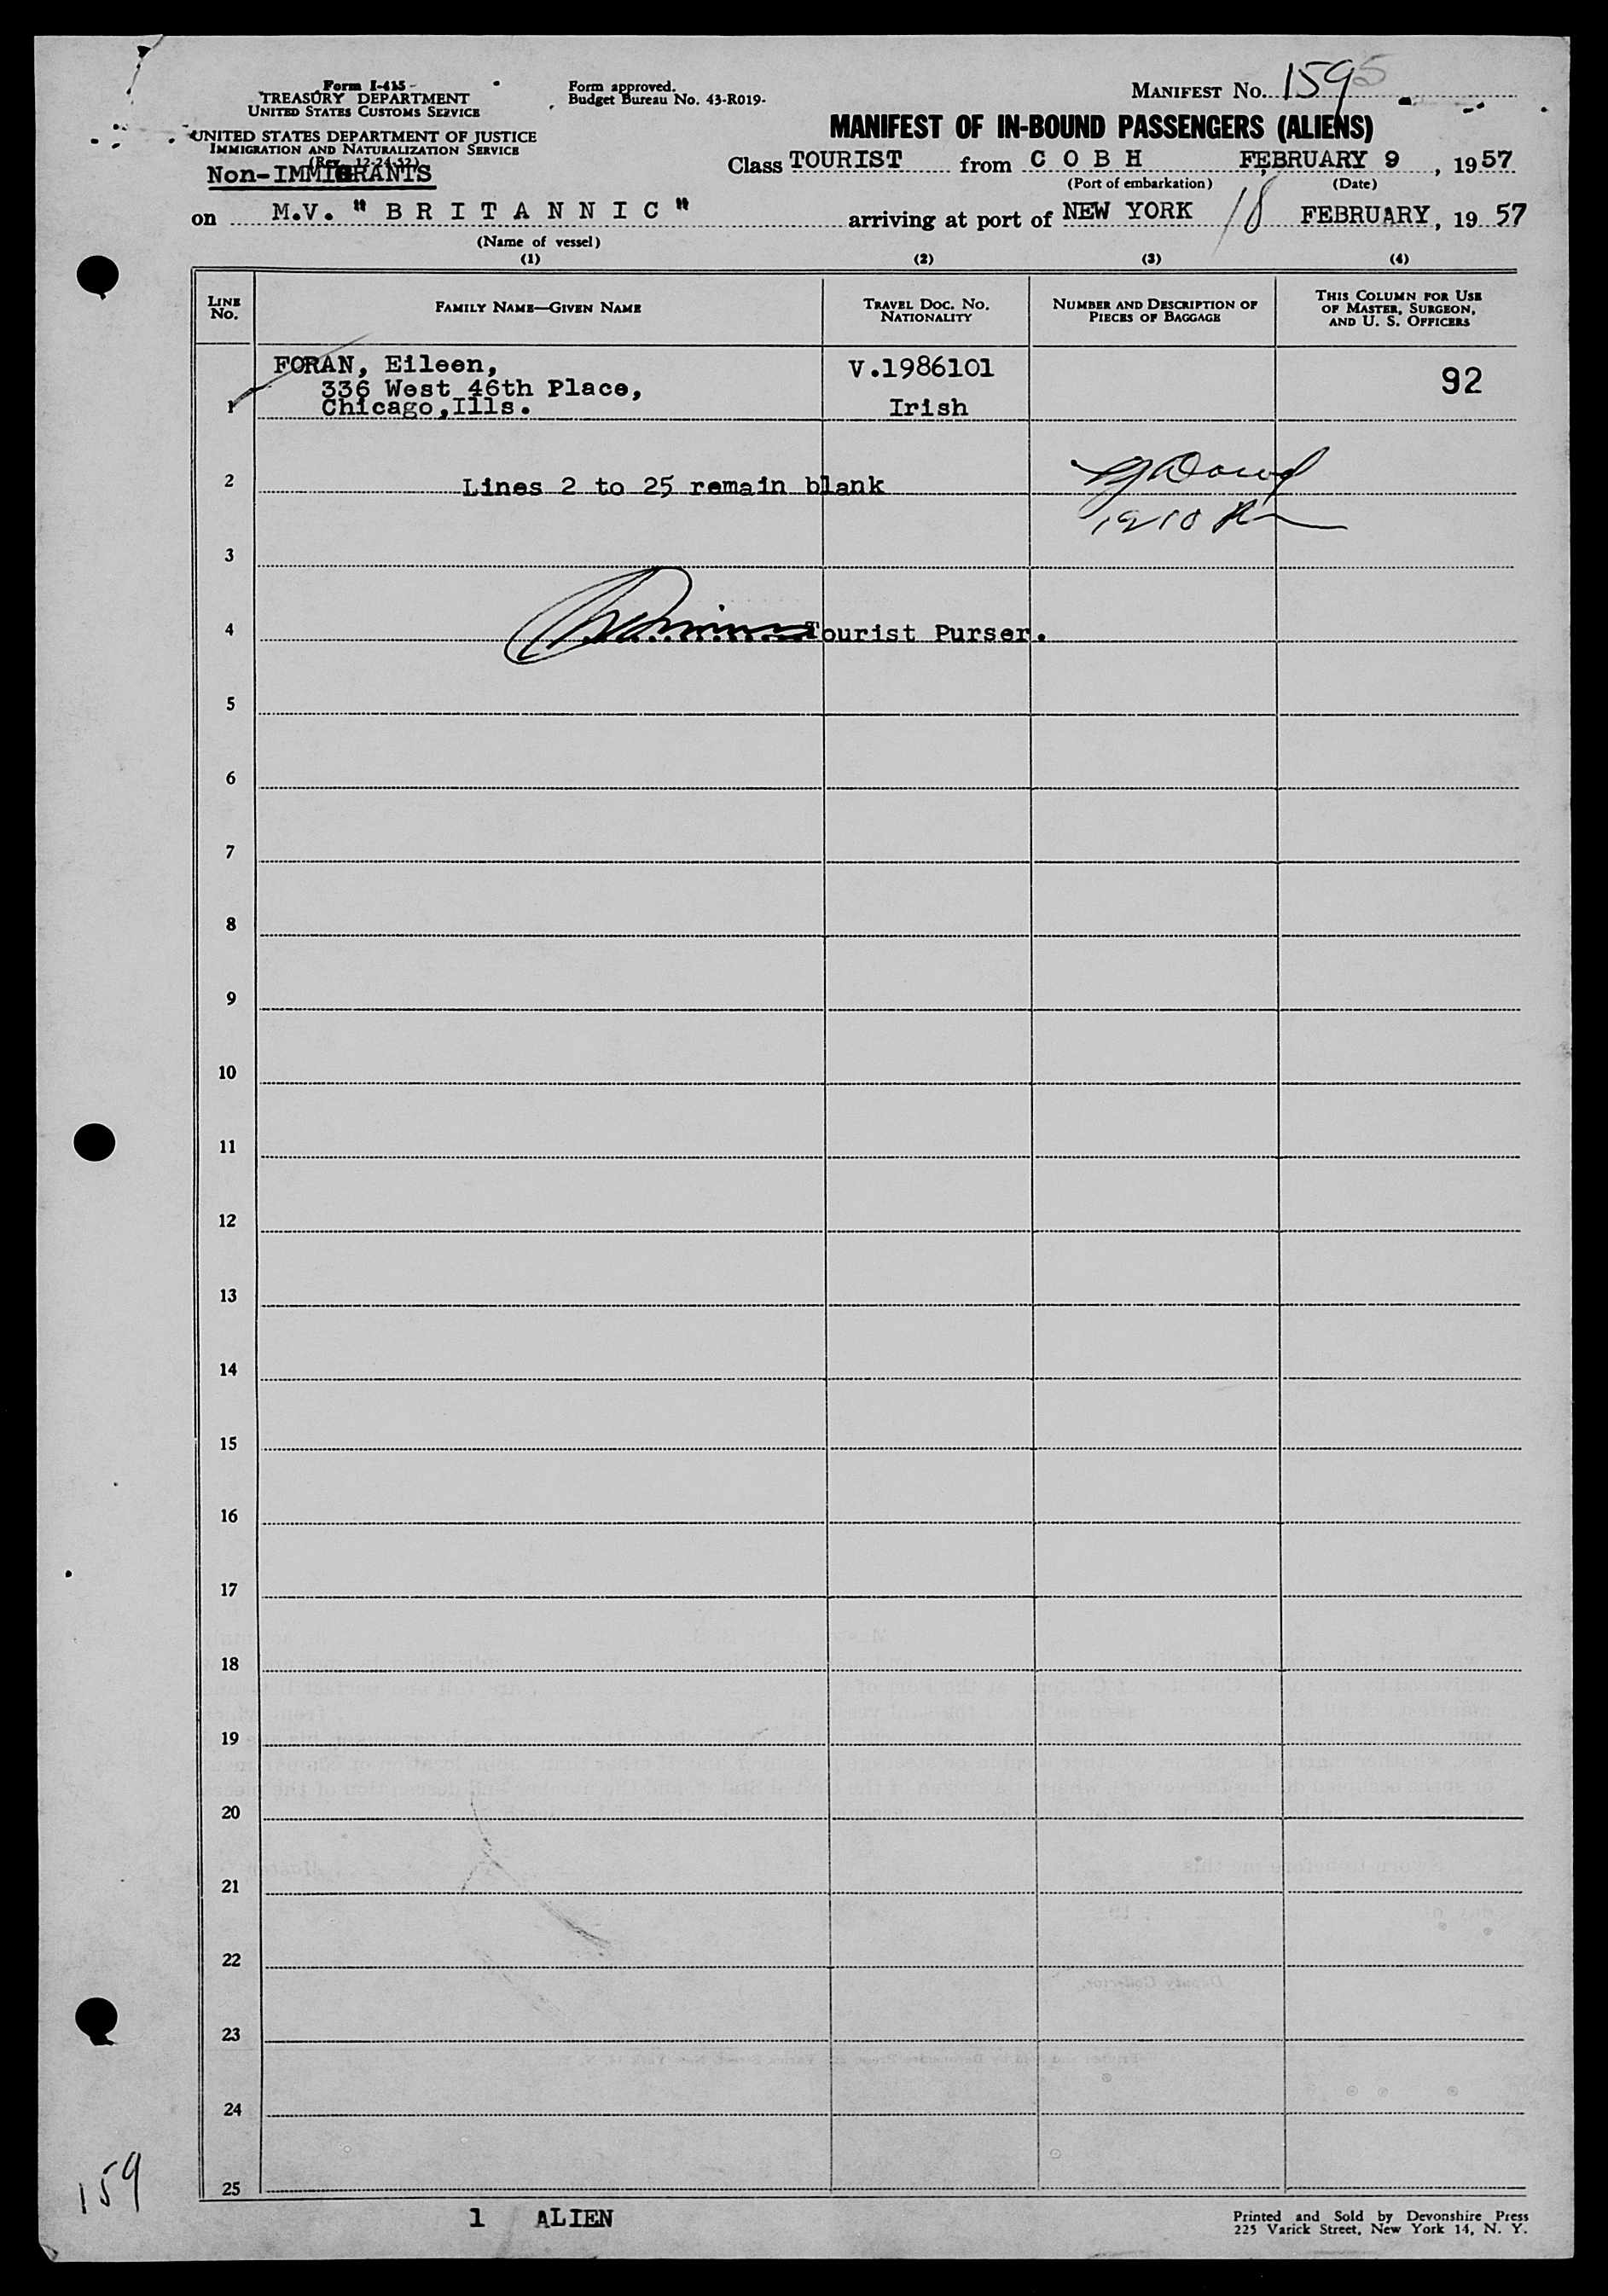 Form I-415
TREASURY DEPARTMENT
UNITED STATES CUSTOMS SERVICE
UNITED STATES DEPARTMENT OF JUSTICE
IMMIGRATION AND NATURALIZATION SERVICE
(Rev. 12-24-52)
Non-IMMIGRANTS
Form approved.
Budget Bureau No. 43-R019-
MANIFEST No. 159
MANIFEST OF IN-BOUND PASSENGERS (ALIENS)
Class TOURIST from C O B H FEBRUARY 9, 1957
(Port of embarkation) (Date)
on M.V. " B R I T A N N I C " arriving at port of NEW YORK 18 FEBRUARY, 19 57
(Name of vessel)
(1) (2) (3) (4)
LINE No. FAMILY NAME—GIVEN NAME TRAVEL DOC. NO. NATIONALITY NUMBER AND DESCRIPTION OF PIECES OF BAGGAGE THIS COLUMN FOR USE OF MASTER, SURGEON, AND U. S. OFFICERS
FORAN, Eileen, V.1986101 92
336 West 46th Place,
1 Chicago,Ills. Irish
2 Lines 2 to 25 remain blank
3
4 Tourist Purser.
5
6
7
8
9
10
11
12
13
14
15
16
17
18
19
20
21
22
23
24
25
159
1 ALIEN
Printed and Sold by Devonshire Press
225 Varick Street, New York 14, N. Y.